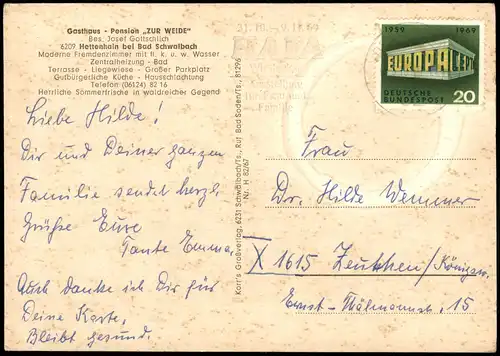 Gasthaus - Pension „ZUR WEIDE"
Bes. Josef Gottschlich
6209 Hettenhain bei Bad Schwalbach
Moderne Fremdenzimmer mit fl. k. u. w. Wasser
Zentralheizung - Bad
Terrasse - Liegewiese - Großer Parkplatz
Gutbürgerliche Küche - Hausschlachtung
Telefon (06124) 82 16
Herrliche Sommerfrische in waldreicher Gegend
Liebe Hilde!
Dir und Deiner ganzen
Familie sendet herzl.
Grüße Eure
Tante Emma.
Auch danke ich Dir für
Deine Karte,
Bleibt gesund.
Korr's Großverlag, 6231 Schwalbach/Ts., Ruf Bad Soden/Ts. 81296
Nr. H 82/67
1959 1969
EUROPA CEPT
DEUTSCHE
BUNDESPOST 20
Frau
Dr. Hilde Wemmer
X 1615 Zeuthen/Königsw.
Ernst-Thälmannstr. 15